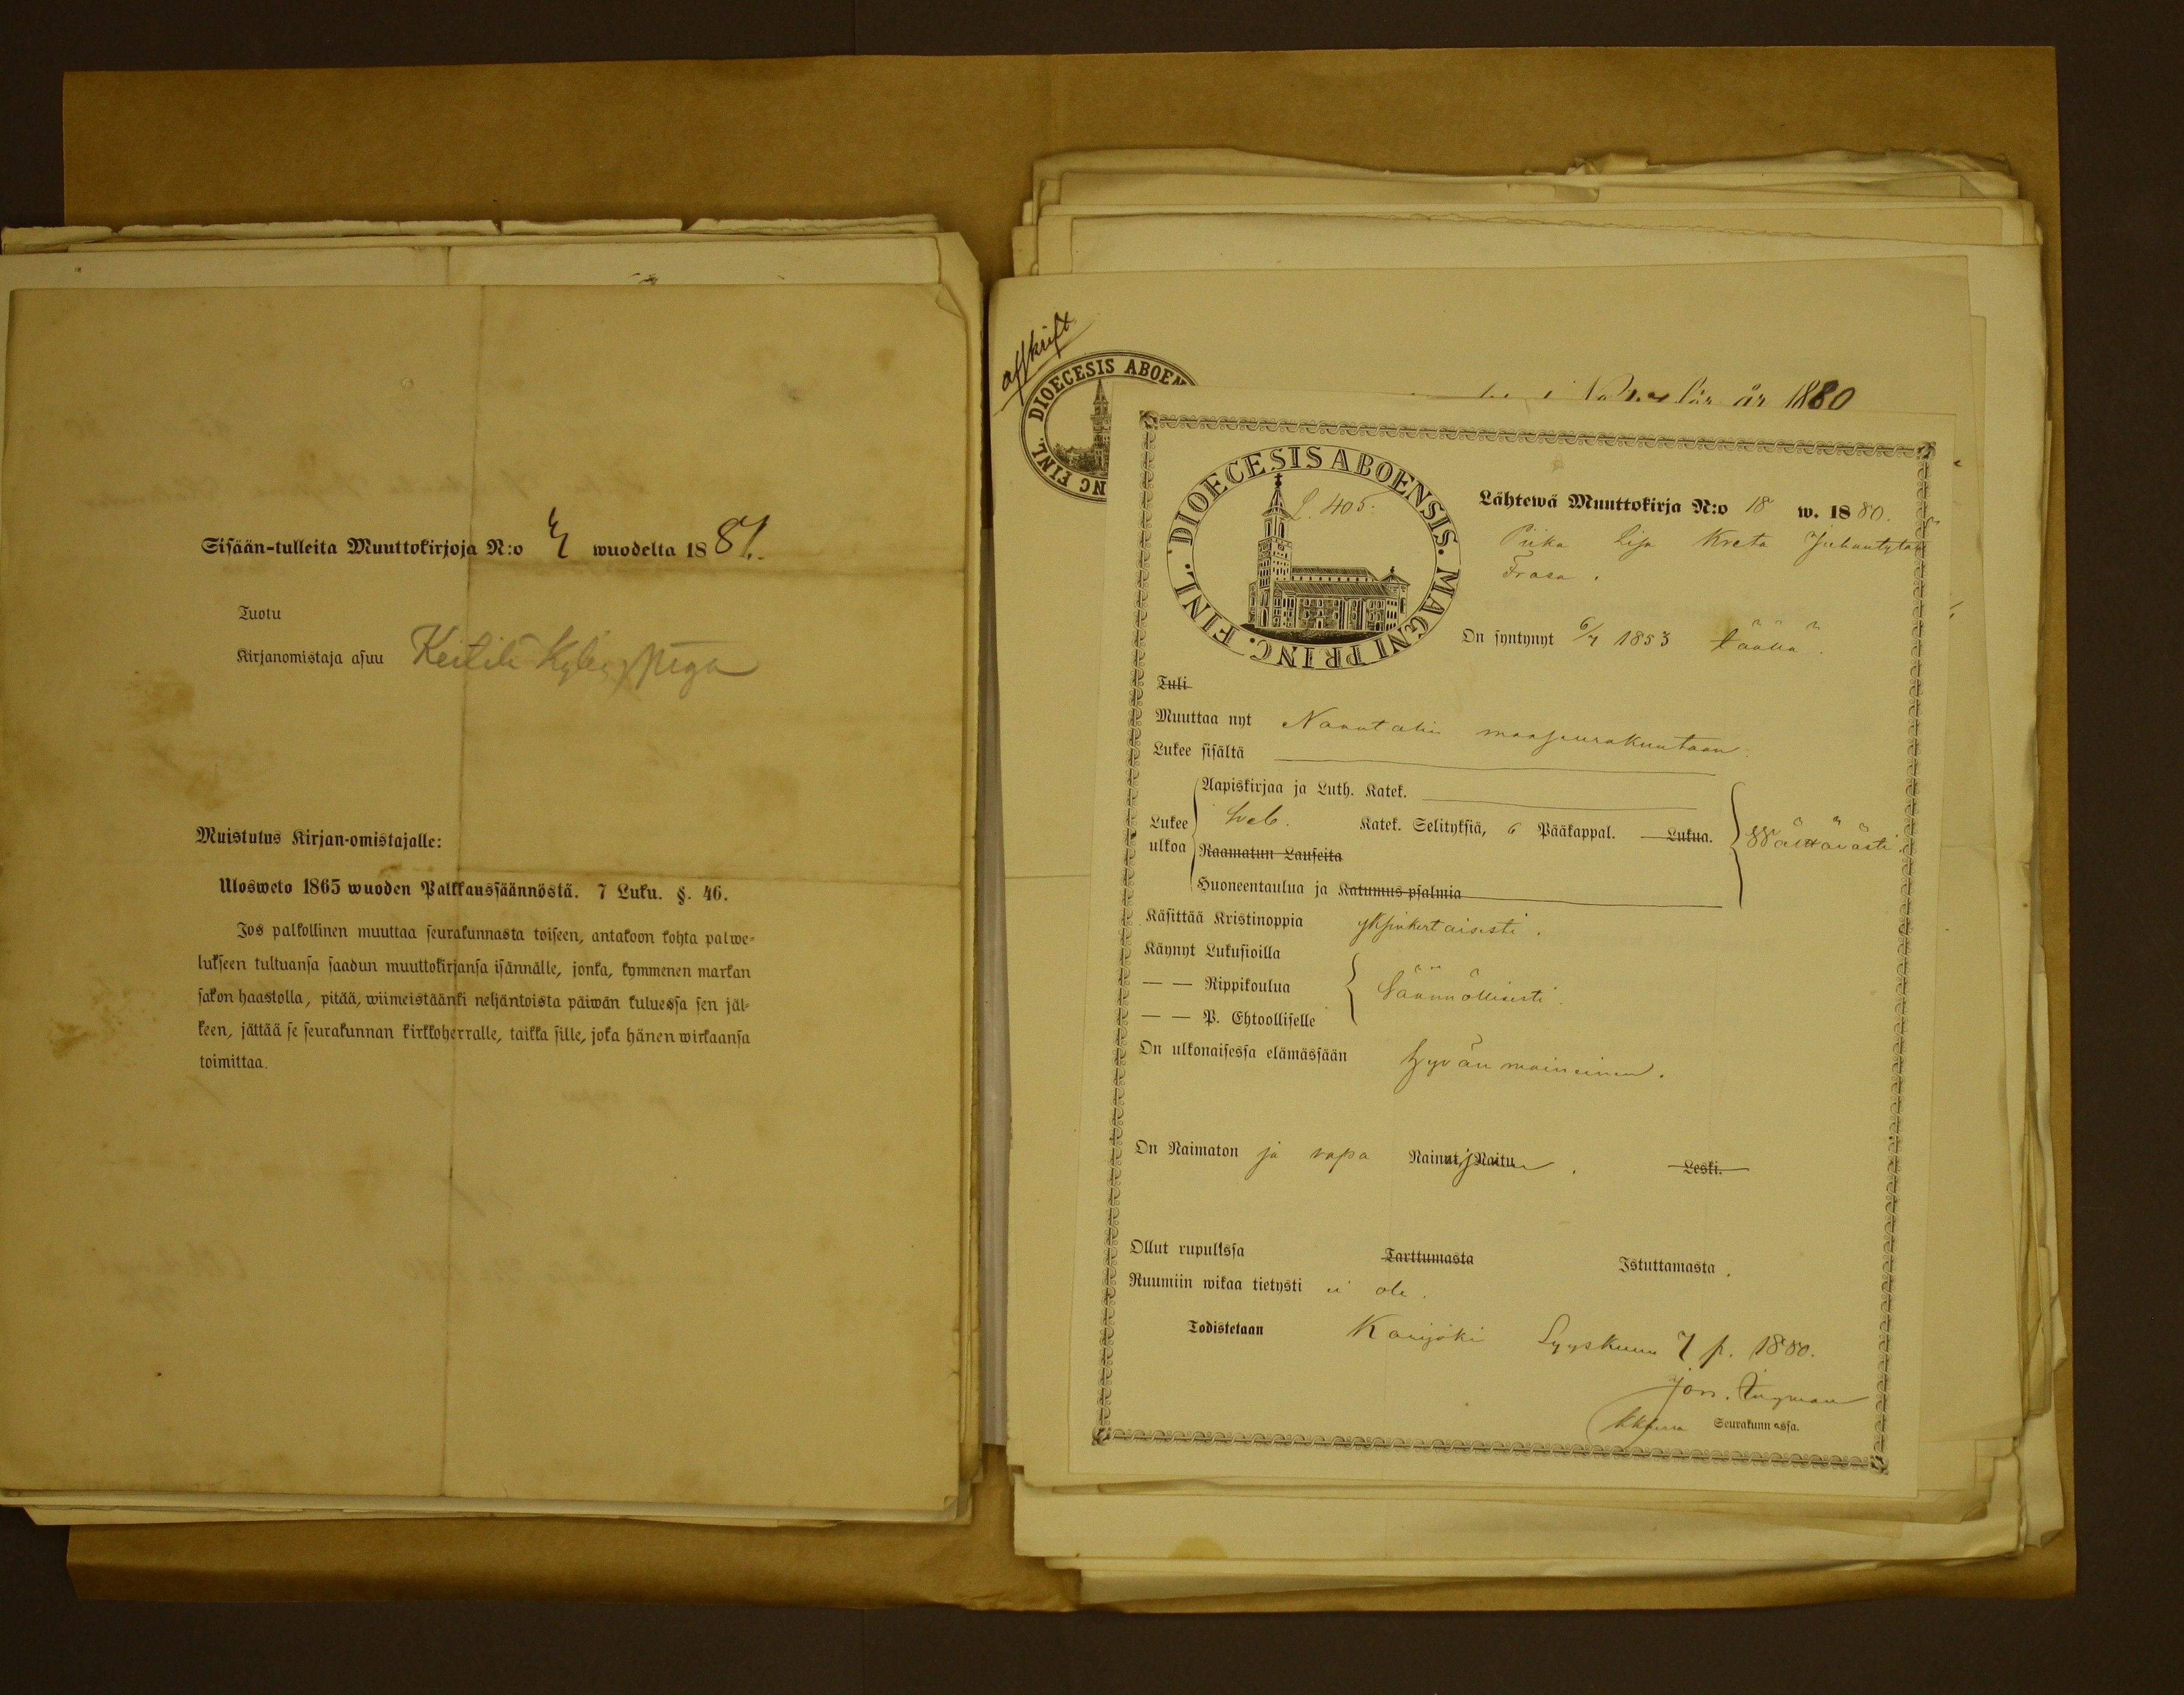 Sisään-tulleita Muuttokirjoja N:o 4 wuodelta 1881.
Tuotu
Kirjanomistaja asuu Keitilä piga
Muistutus Kirjan-omistajalle:
Ulosweto 1865 wuoden Palkkaussäännöstä. 7 Luku. §. 46.
Jos palkollinen muuttaa seurakunnasta toiseen, antakoon kohta palwe-
lukseen tultuansa saadun muuttokirjansa isännälle, jonka, kymmenen markan
sakon haastolla, pitää, wiimeistäänki neljäntoista päiwän kuluessa sen jäl-
keen, jättää se seurakunnan kirkkoherralle, taikka sille, joka hänen wirkaansa
toimittaa.
afskrift
DIOECESIS ABOEN
NC FINL.
för år 1880
DIOECESIS ABOENSIS. MAGNI PRINC. FINL.
S. 405.
Lähtewä Muuttokirja N:o 18 w. 1880.
Piika Lisa Kreta Juhantytär
Frasa.
On syntynyt 6/4 1853 täällä.
Tuli
Muuttaa nyt Naantalin maaseurakuntaan.
Lukee sisältä
Lukee ulkoa
Aapiskirjaa ja Luth. Katek.
Sveb. Katek. Selityksiä, 6 Pääkappal. Lukua.
Raamatun Lauseita
Huoneentaulua ja Katumus-psalmia
Välttävästi.
Käsittää Kristinoppia yksinkertaisesti.
Käynyt Lukusioilla
— — Rippikoulua
— — P. Ehtoolliselle
Säännöllisesti.
On ulkonaisessa elämässään hyvän maineinen.
On Naimaton ja vapa Nainut, Naitu Leski.
Ollut rupulissa Tarttumasta Istuttamasta.
Ruumiin wikaa tietysti ei ole.
Todistetaan Karijoki Syyskuun 7 p. 1880.
Jon. Ingman
Kkherra Seurakunnassa.